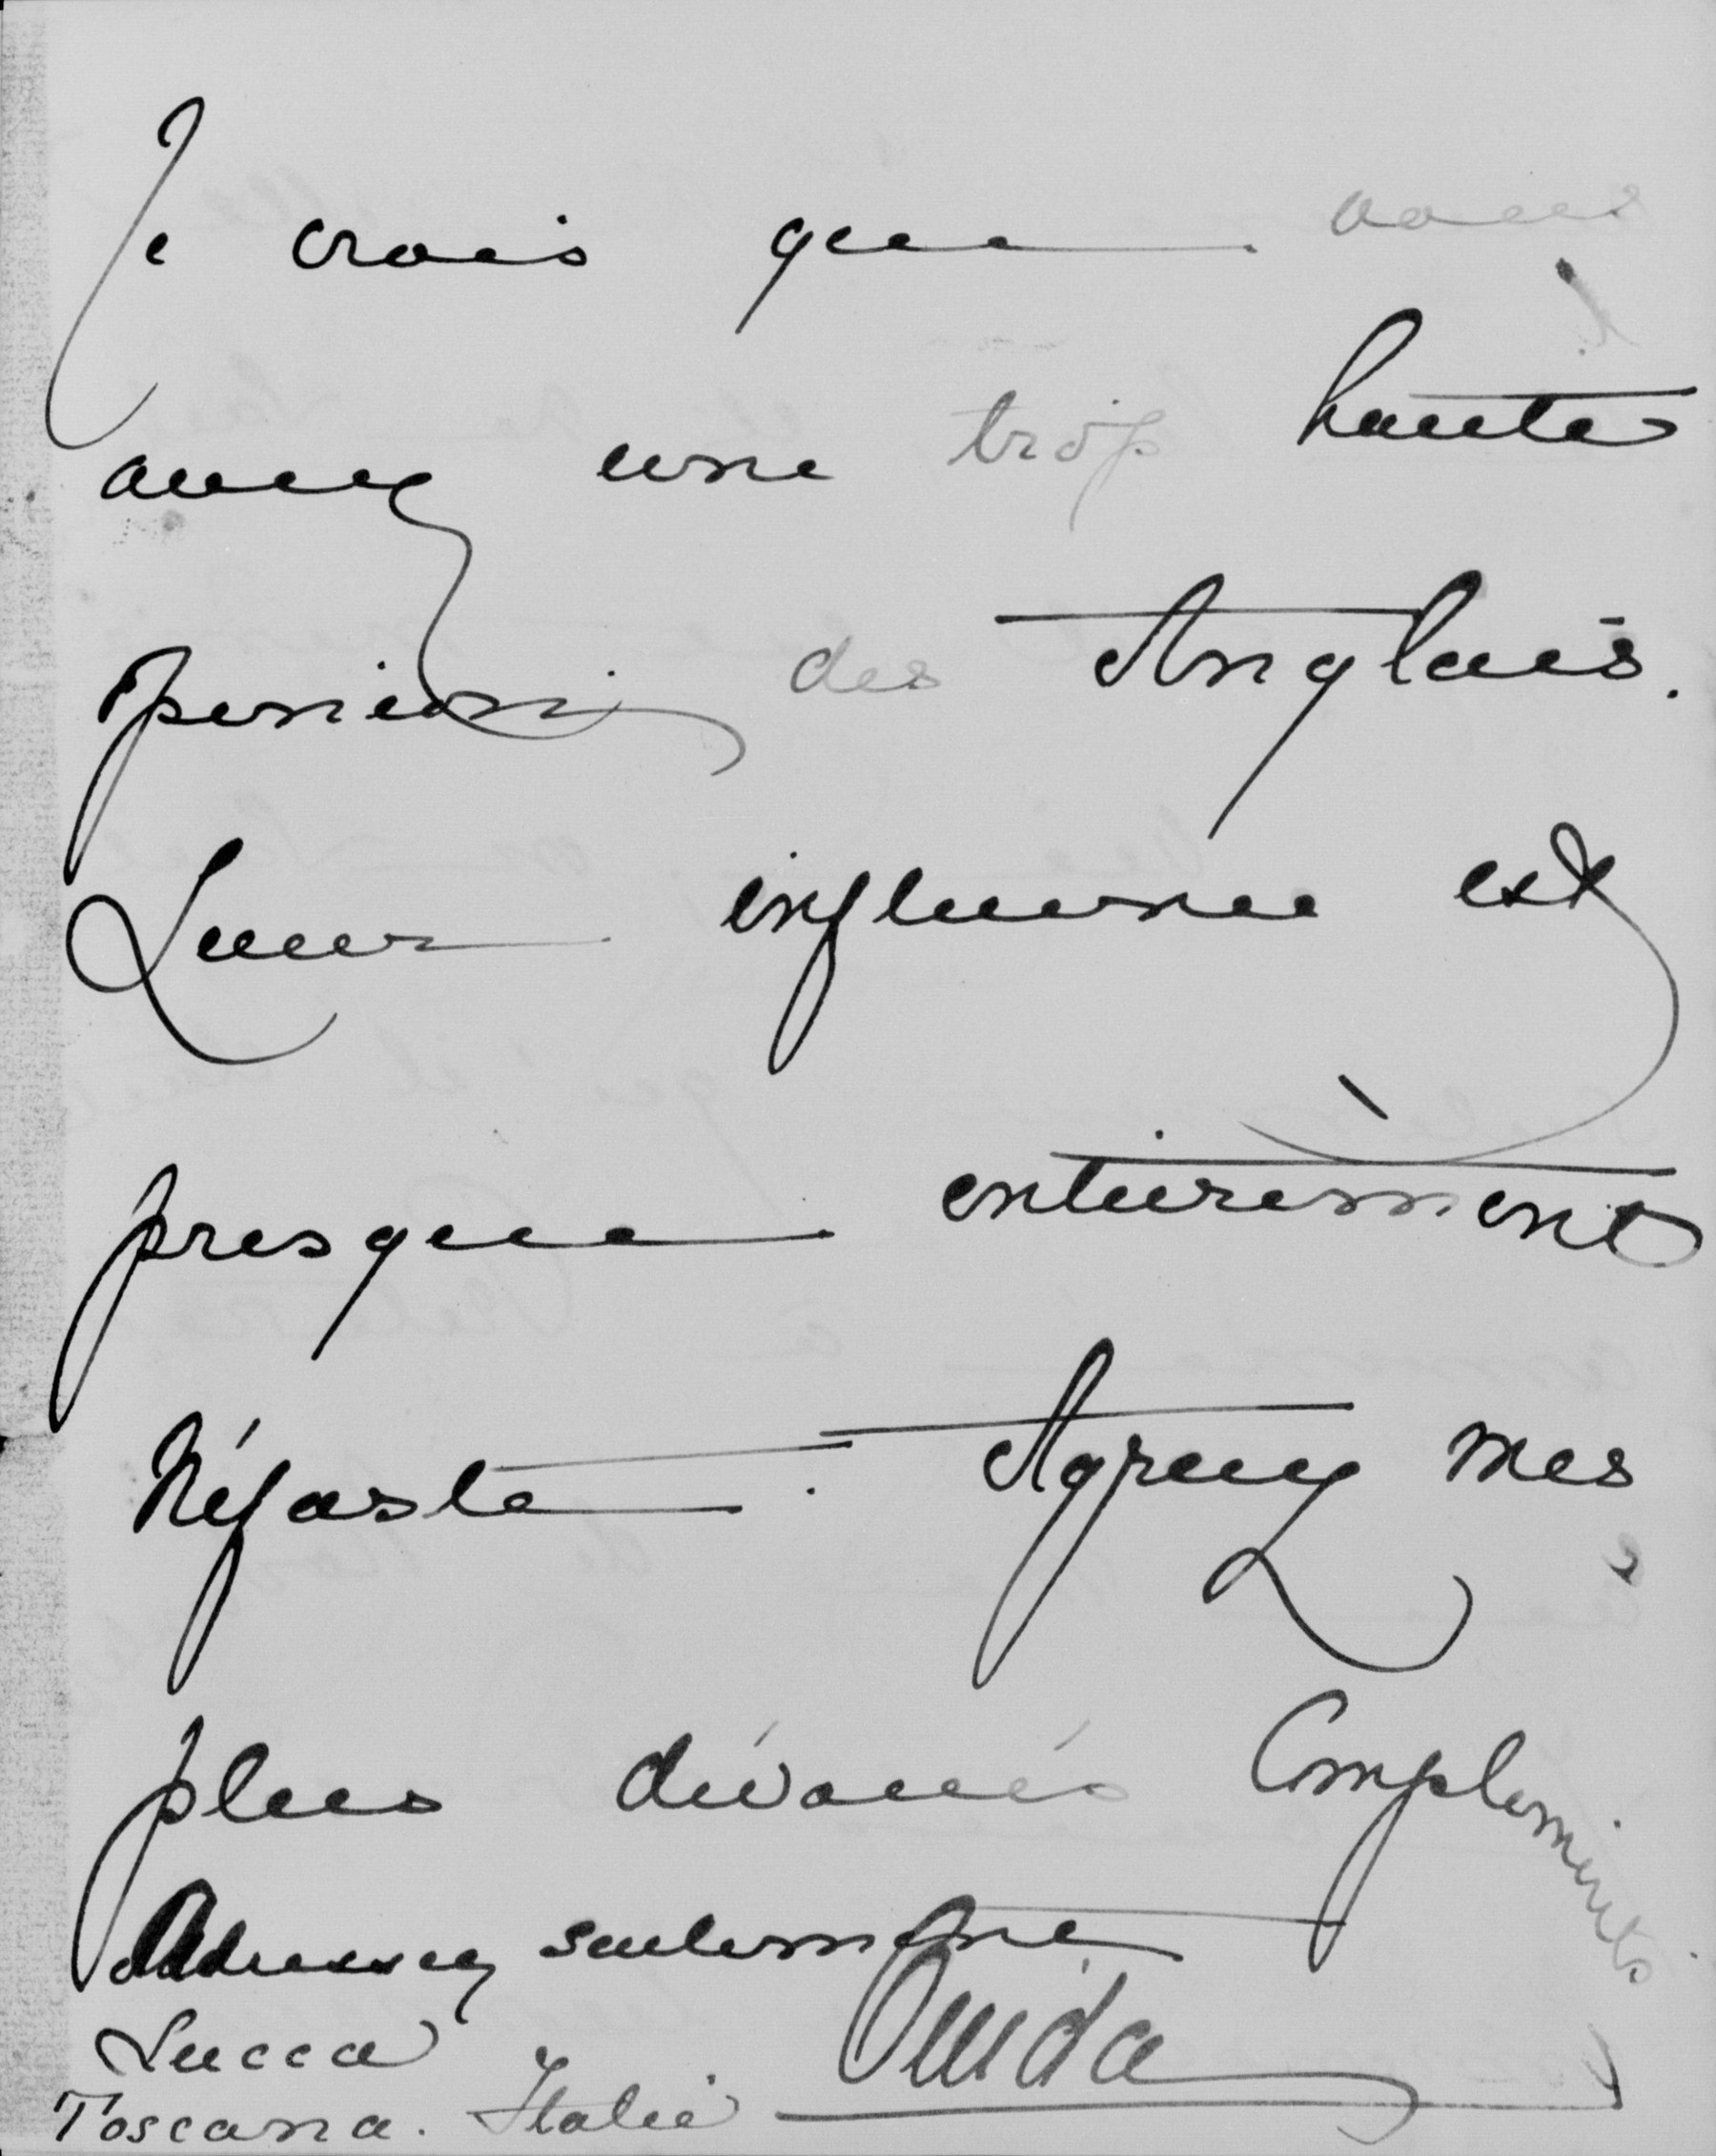 Je crois que vous
avez une trop haute
opinion des Anglais.
Leur influence est
presque entièrement
Néfaste. Agreez mes
plus dévoués Compliments
Adressez seulement
Ouida
Lucca
Toscana. Italie